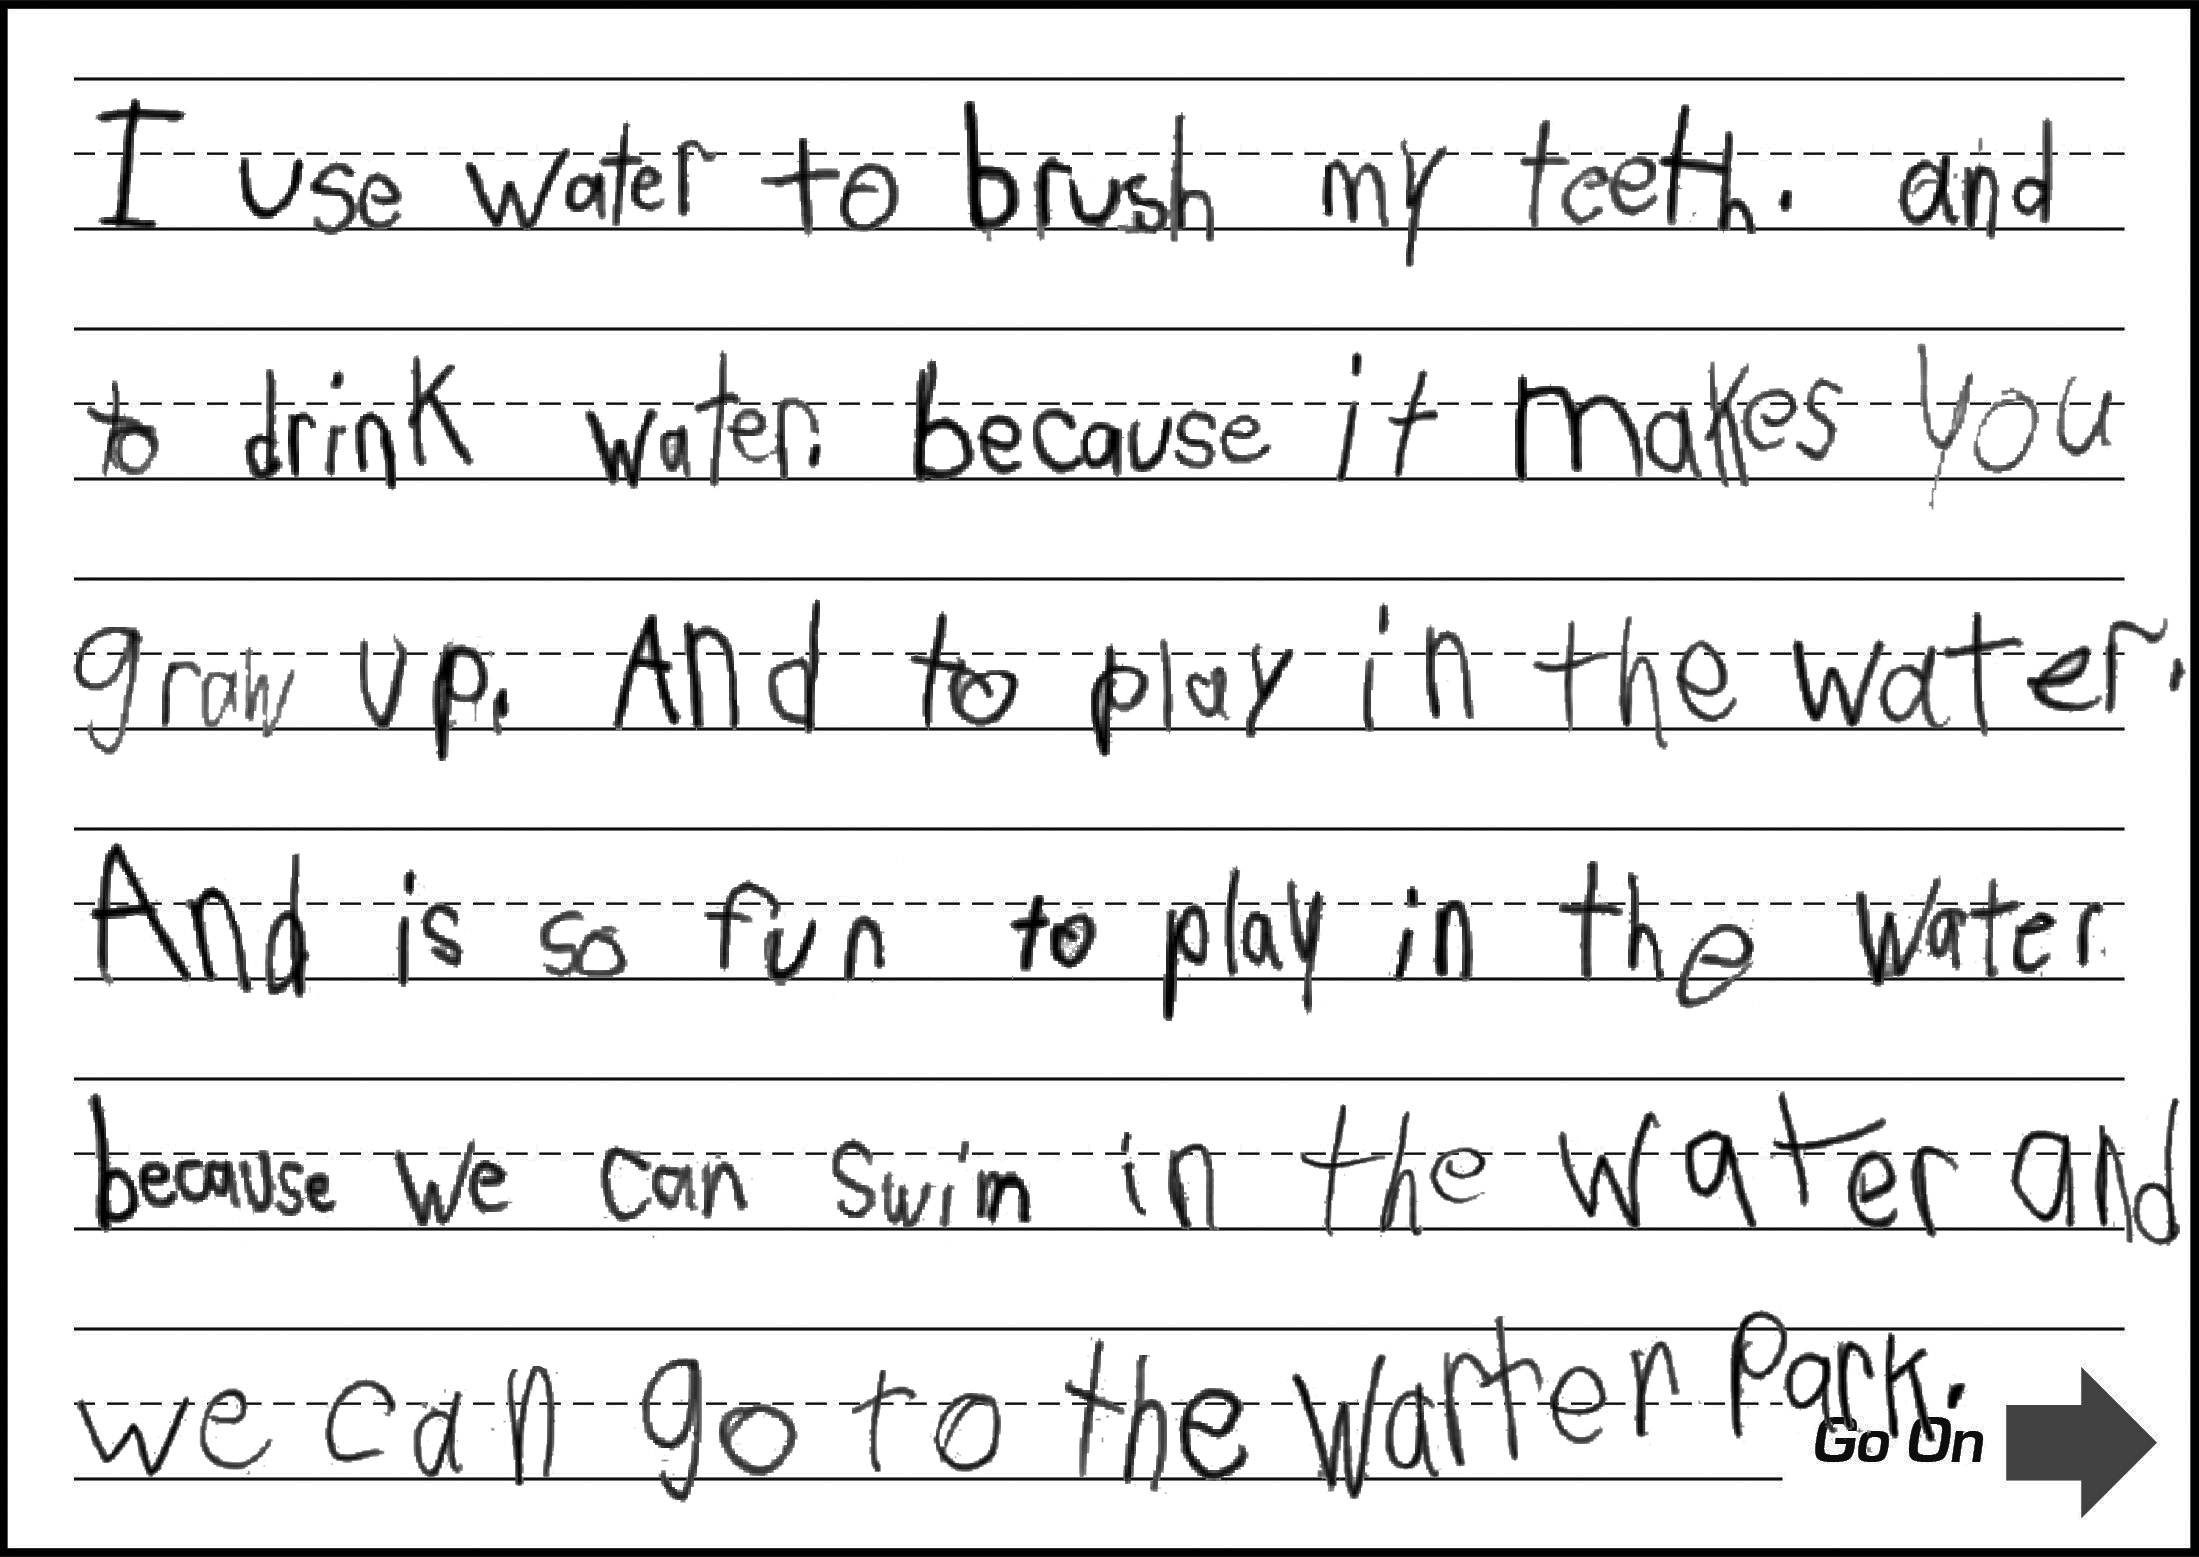 I use water to brush my teeth. and
to drink water. because it makes you
graw up. And to play in the water.
And is so fun to play in the water
because we can swim in the water and
we can go to the warter Park.
Go On